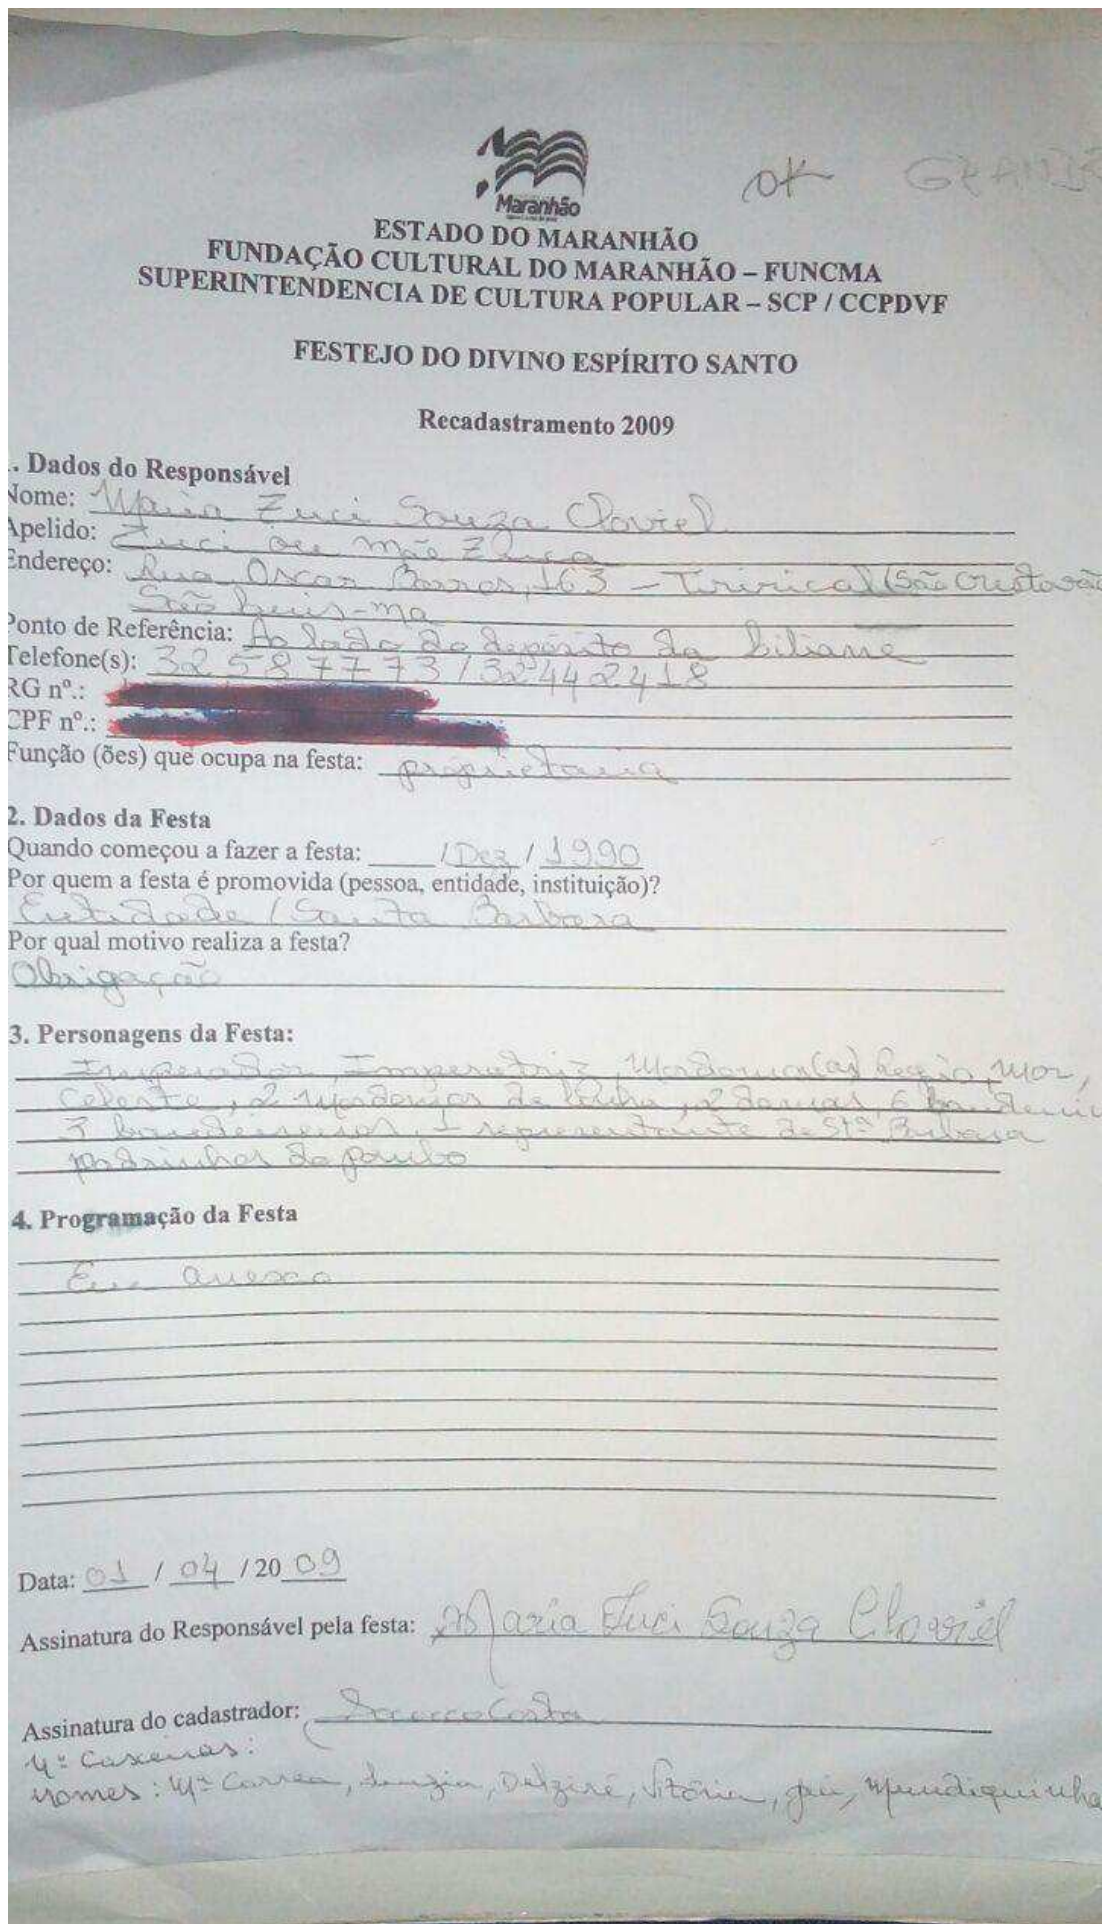 Maranhão
ok GRANDE
ESTADO DO MARANHÃO
FUNDAÇÃO CULTURAL DO MARANHÃO – FUNCMA
SUPERINTENDENCIA DE CULTURA POPULAR – SCP / CCPDVF
FESTEJO DO DIVINO ESPÍRITO SANTO
Recadastramento 2009
. Dados do Responsável
Nome: Maria Zuci Souza
Apelido: Zuci ou mãe Zuca
Endereço: Rua Oscar Barros, 163 – Tirirical (São Cristovão
São Luis-ma
Ponto de Referência: Ao lado do depósito da Liliane
Telefone(s): 32587773 / 32442418
RG nº.:
CPF nº.:
Função (ões) que ocupa na festa: proprietaria
2. Dados da Festa
Quando começou a fazer a festa: / Dez / 1990
Por quem a festa é promovida (pessoa, entidade, instituição)?
Entidade / Santa Barbara
Por qual motivo realiza a festa?
Obrigação
3. Personagens da Festa:
Imperador, Imperatriz, Mordomo(as) Regio, Mor,
Celeste, 2 mordomos de linha, 2 damas, 6
3 bandeireiros, 1 representante de Stª Barbara
padrinhos da pomba
4. Programação da Festa
Em anexo
Data: 01 / 04 / 2009
Assinatura do Responsável pela festa: Maria Zuci Souza
Assinatura do cadastrador: Socorro Costa
Caxeiras:
nomes: Mª Correa, Luzia, Delziré, Vitória, Mundiquinha